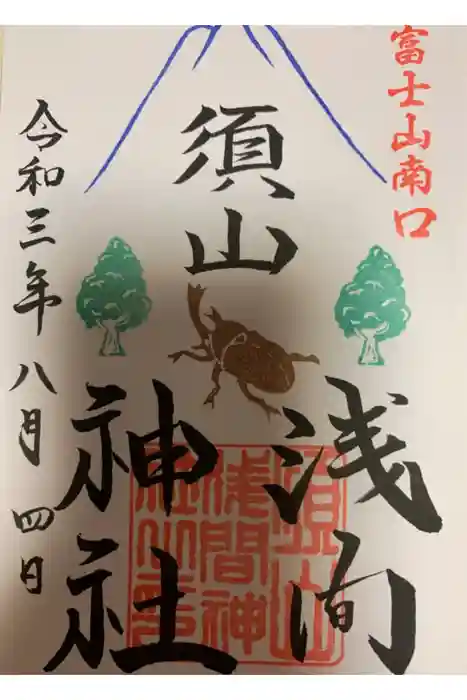 富士山南口
須山
浅間
神社
令和三年八月四日
須山
浅間神
社